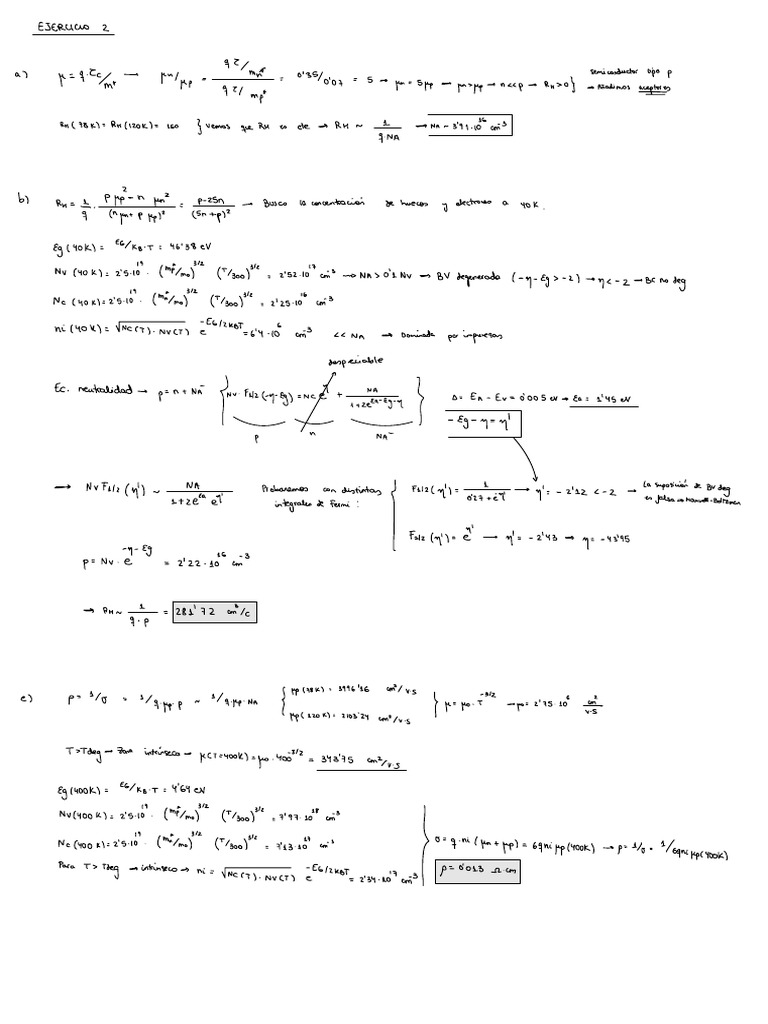 EJERCICIO 2
a) μ = q·τc/m* → μn/μp = (qτ/mn*)/(qτ/mp*) = 0'35/0'07 = 5 → μn = 5μp → μn>μp → n<<p → RH>0 } semiconductor tipo p
→ Añadimos aceptores
RH (78K) = RH (120K) = 160 } vemos que RH es cte → RH ~ 1/(q·NA) → NA ~ 3'91·10^16 cm^-3
b) RH = 1/q · (p μp² - n μn²)/(n μn + p μp)² = (p-25n)/(5n+p)² → Busco la concentración de huecos y electrones a 40K.
Eg (40K) = EG/KB·T = 46'38 eV
Nv (40K) = 2'5·10^19 · (mp*/mo)^3/2 (T/300)^3/2 = 2'52·10^17 cm^-3 → NA > 0'1 Nv → BV degenerada (-η-Eg > -2) → η < -2 → BC no deg
Nc (40K) = 2'5·10^19 · (mn*/mo)^3/2 (T/300)^3/2 = 2'25·10^16 cm^-3
ni (40K) = √(Nc(T)·Nv(T)) e^(-EG/2KBT) = 6'4·10^6 cm^-3 << NA → Dominada por impurezas
despreciable
Ec. neutralidad → p = n + NA^- { Nv·F1/2 (-η-Eg) = Nc e^η + NA/(1+2e^(Ea-Eg-η)) } Δ = EA - Ev = 0'005 eV → εa = 1'45 eV
p n NA^- -Eg - η = η'
→ Nv F1/2 (η') ~ NA/(1+2e^εa e^η') Probaremos con distintas integrales de Fermi : { F1/2 (η') = 1/(0'27+e^-η') → η' = -2'12 < -2 → La suposición de BV deg es falsa → Maxwell-Boltzman
F1/2 (η') = e^η' → η' = -2'43 → η = -43'95
p = Nv · e^(-η-Eg) = 2'22·10^16 cm^-3
→ RH ~ 1/(q·p) = 281'72 cm³/C
c) ρ = 1/σ = 1/q·μp·p ~ 1/q·μp·NA { μp (78K) = 3996'36 cm²/V·S
μp (120K) = 2103'24 cm²/V·S } μ = μo·T^-3/2 → μo = 2'75·10^6 cm²/V·S
T > Tdeg → Zona intrínseca → μ(T=400K) = μo·400^-3/2 = 343'75 cm²/V·S
Eg (400K) = EG/KB·T = 4'64 eV
Nv (400K) = 2'5·10^19 · (mp*/mo)^3/2 (T/300)^3/2 = 7'97·10^18 cm^-3
Nc (400K) = 2'5·10^19 · (mn*/mo)^3/2 (T/300)^3/2 = 7'13·10^17 cm^-3
Para T > Tdeg → intrínseco → ni = √(Nc(T)·Nv(T)) e^(-EG/2KBT) = 2'34·10^17 cm^-3
σ = q·ni (μn + μp) = 6qni μp(400K) → ρ = 1/σ = 1/6qni μp(400K)
ρ = 0'013 Ω·cm